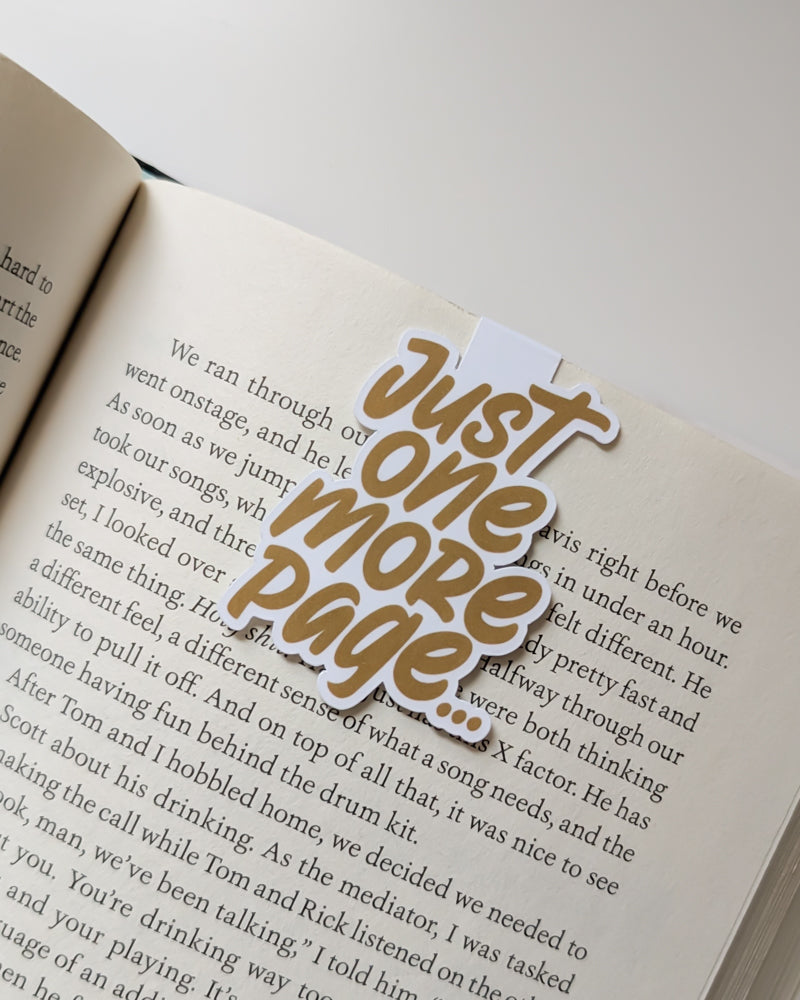 hard to
rt the
nce.
e
Just
one
more
page...
We ran through ou
avis right before we
went onstage, and he le
ngs in under an hour.
As soon as we jump
felt different. He
took our songs, wh
dy pretty fast and
explosive, and thre
Halfway through our
set, I looked over
were both thinking
the same thing. Holy shit
X factor. He has
a different feel, a different sense of what a song needs, and the
ability to pull it off. And on top of all that, it was nice to see
someone having fun behind the drum kit.
After Tom and I hobbled home, we decided we needed to
Scott about his drinking. As the mediator, I was tasked
making the call while Tom and Rick listened on the oth
ook, man, we've been talking," I told him. "
t you. You're drinking way too
and your playing. It's
guage of an addi
en he